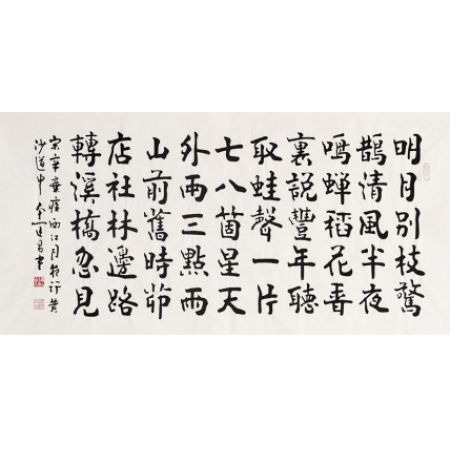 明月别枝驚
鵲清風半夜
鳴蟬稻花香
裏說豐年聽
取蛙聲一片
七八箇星天
外兩三點雨
山前舊時茆
店社林邊路
轉溪橋忽見
宋辛棄疾西江月夜行黄
沙道中